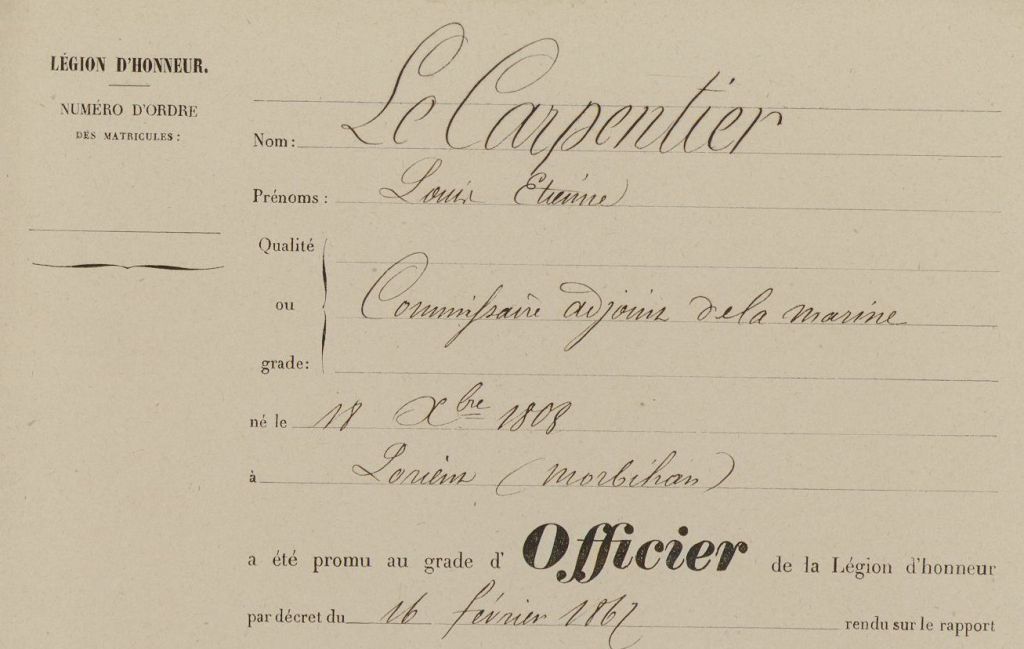 LÉGION D'HONNEUR.
NUMÉRO D'ORDRE
DES MATRICULES :
Nom: Le Carpentier
Prénoms : Louis Etienne
Qualité
ou
grade:
Commissaire adjoint de la marine
né le 18 Xbre 1808
à Lorient (Morbihan)
a été promu au grade d' Officier de la Légion d'honneur
par décret du 16 février 1867 rendu sur le rapport